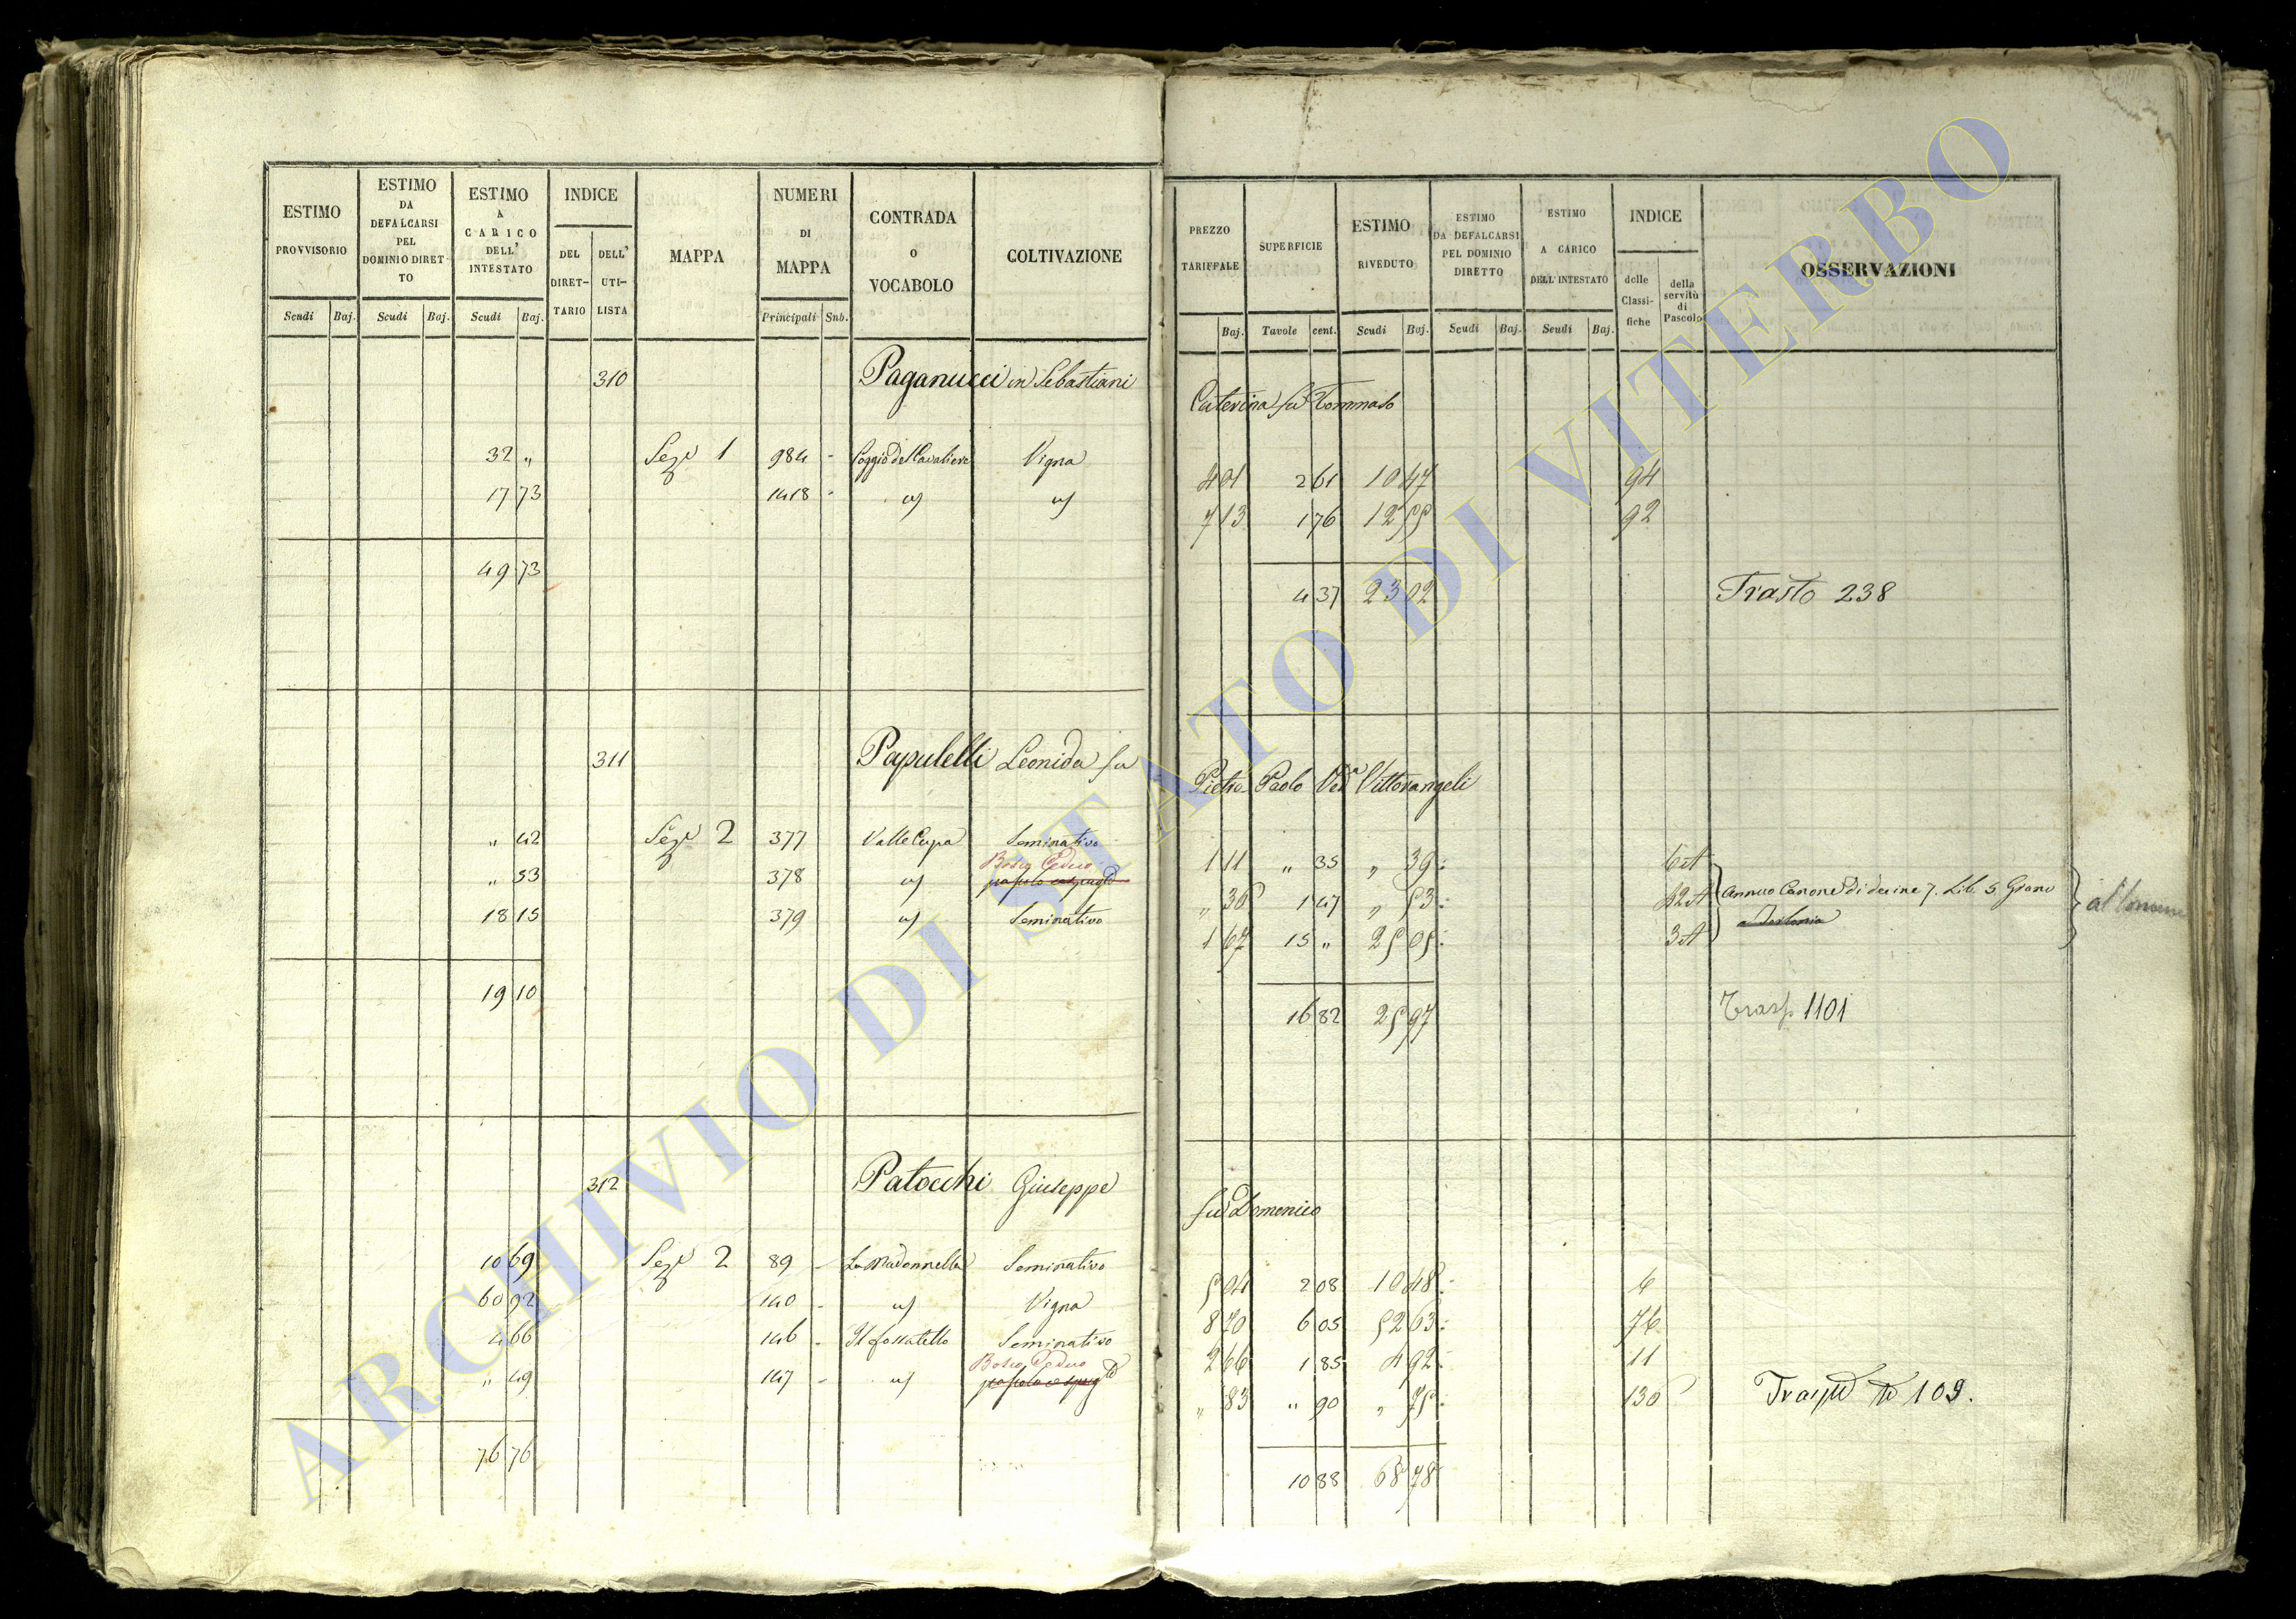 ESTIMO PROVVISORIO Scudi Baj.
ESTIMO DA DEFALCARSI PEL DOMINIO DIRET-TO Scudi Baj.
ESTIMO A CARICO DELL' INTESTATO Scudi Baj.
INDICE DEL DIRET-TARIO DELL' UTI-LISTA
MAPPA
NUMERI DI MAPPA Principali Sub.
CONTRADA o VOCABOLO
COLTIVAZIONE
310 Paganucci in Sebastiani
32 „ Sez.e 1 984 - Poggio del Cavaliere Vigna
17 73 1418 -
49 73
311 Papulelli Leonida fu
„ 42 Sez.e 2 377 Valle Cupa Seminativo
Bosco Ceduo
„ 53 378
18 15 379 Seminativo
19 10
312 Patocchi Giuseppe
10 69 Sez.e 2 89 - La Madonnella Seminativo
60 92 140 - Vigna
4 66 146 - Il fossatello Seminativo
Bosco Ceduo
„ 49 147 -
76 76
PREZZO TARIFFALE Baj.
SUPERFICIE Tavole cent.
ESTIMO RIVEDUTO Scudi Baj.
ESTIMO DA DEFALCARSI PEL DOMINIO DIRETTO Scudi Baj.
ESTIMO A CARICO DELL'INTESTATO Scudi Baj.
INDICE delle Classi-fiche della servitù di Pascolo
OSSERVAZIONI
Caterina fu Tommaso
4 01 2 61 10 47 94
7 13 1 76 12 55 92
4 37 23 02 Trasto 238
Pietro Paolo Ved.a Vittorangeli
1 11 „ 35 „ 39
„ 36 1 47 „ 53 Annuo Canone di decine 7. Lib. 5 Grano
1 67 15 „ 25 05
16 82 25 97 Trasp 1101
fu Domenico
5 04 2 08 10 48 6
8 70 6 05 52 63 76
2 66 1 85 4 92 11
„ 83 „ 90 „ 75 130
109.
10 88 68 78
ARCHIVIO DI STATO DI VITERBO